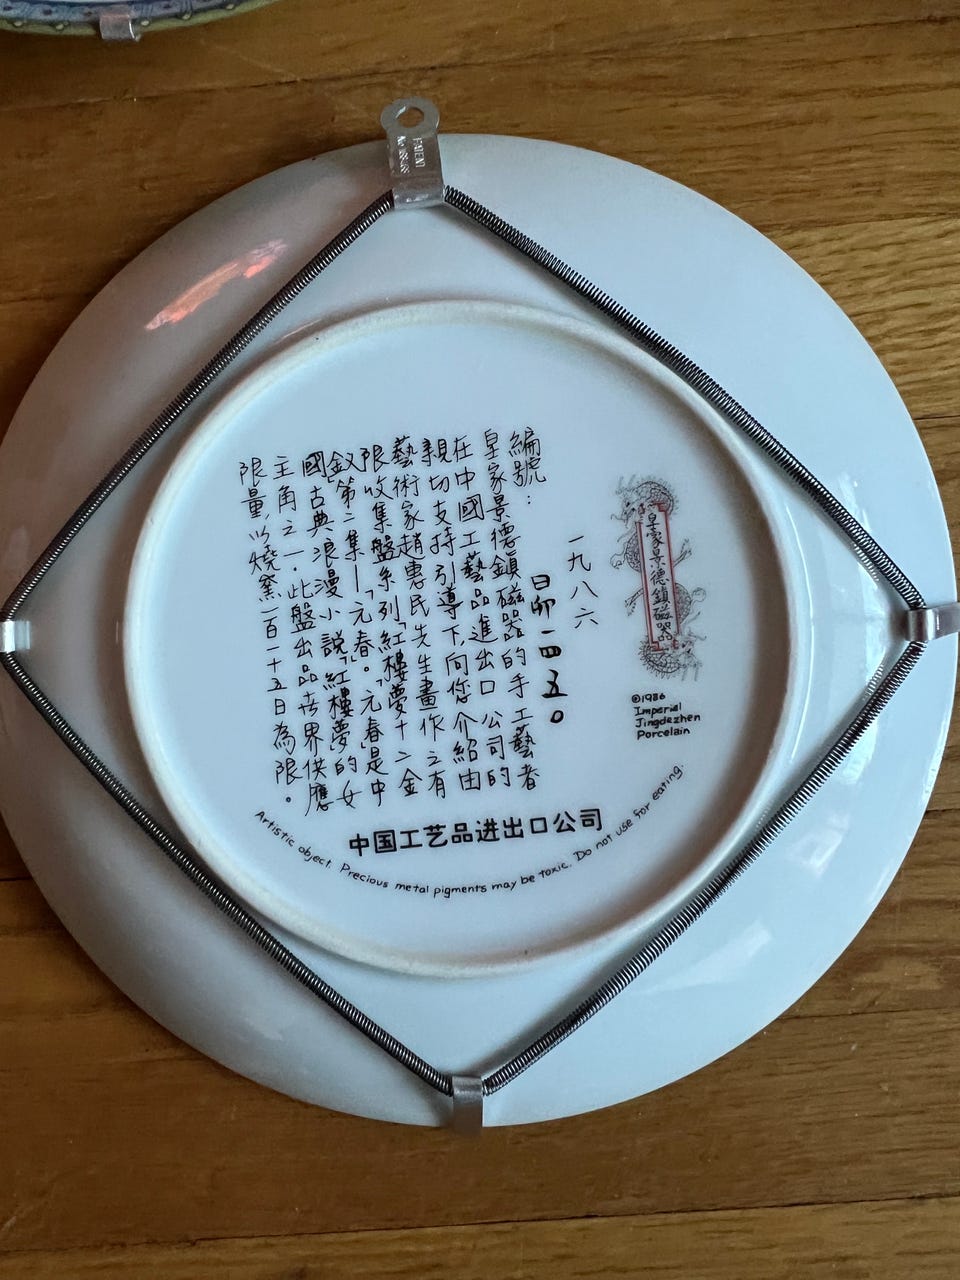 一九八六
編號：日卯一四五〇
皇家景德鎮磁器的手工藝者
在中國工藝品進出口公司的
親切支持引導下,向您介紹由
藝術家趙惠民先生畫作之有
限收集盤系列「紅樓夢十二金
釵」第二集—「元春」。「元春」是中
國古典浪漫小說「紅樓夢」的女
主角之一．此盤出品世界供應
限量以燒窯一百一十五日為限。
皇家景德鎮磁器
©1986
Imperial
Jingdezhen
Porcelain
中国工艺品进出口公司
Artistic object. Precious metal pigments may be toxic. Do not use for eating.
PATENT